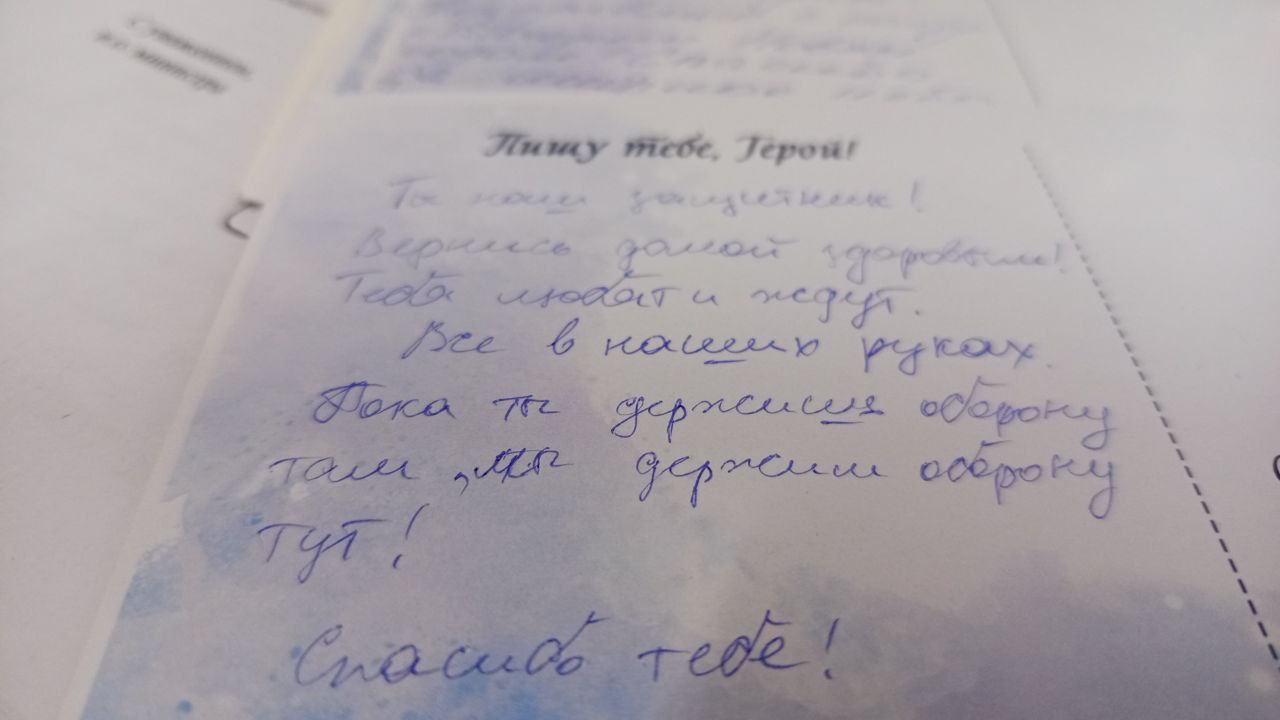 Пишу тебе, Герой!
Ты наш защитник!
Вернись домой здоровым!
Тебя любят и ждут.
Все в наших руках.
Пока ты держишь оборону
там, мы держим оборону
тут!
Спасибо тебе!